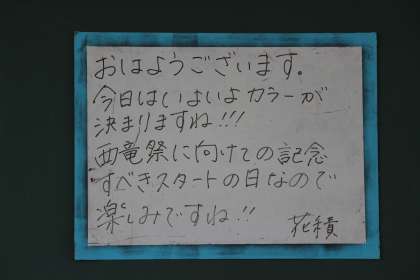 おはようございます。
今日はいよいよカラーが
決まりますね!!!
西竜祭に向けての記念
すべきスタートの日なので
楽しみですね!!
花積